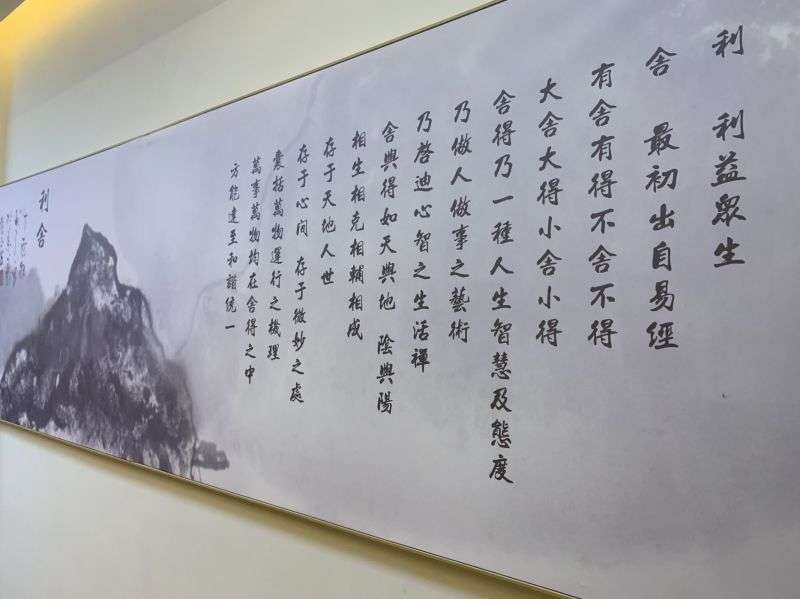 利 利益眾生
舍 最初出自易經
有舍有得不舍不得
大舍大得小舍小得
舍得乃一種人生智慧及態度
乃做人做事之藝術
乃啓迪心智之生活禪
舍與得如天與地 陰與陽
相生相克相輔相成
存于天地人世
存于心間 存于微妙之處
囊括萬物運行之機理
萬事萬物均在舍得之中
方能達至和諧統一
利舍